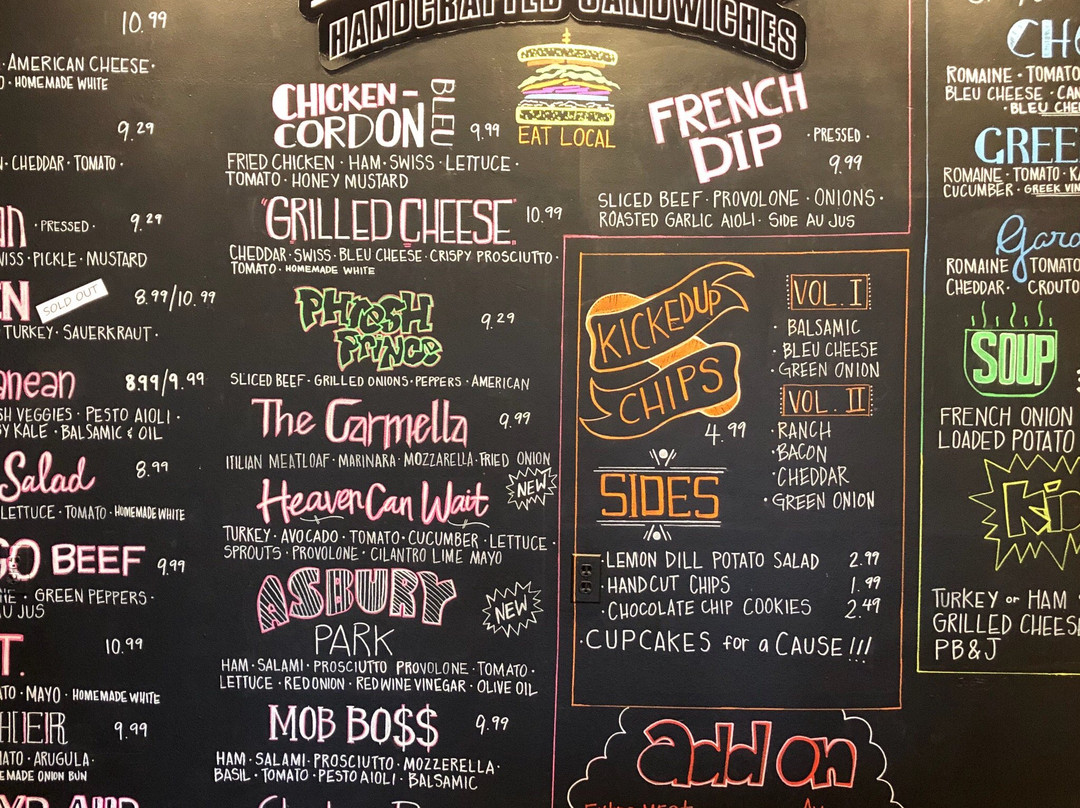 HANDCRAFTED SANDWICHES
10.99
AMERICAN CHEESE·
HOMEMADE WHITE
9.29
· CHEDDAR · TOMATO ·
· PRESSED · 9.29
· PICKLE · MUSTARD
SOLD OUT 8.99/10.99
TURKEY · SAUERKRAUT ·
899/9.99
VEGGIES · PESTO AIOLI ·
KALE · BALSAMIC & OIL
Salad 8.99
LETTUCE · TOMATO · HOMEMADE WHITE
BEEF 9.99
· GREEN PEPPERS ·
AU JUS
10.99
· MAYO · HOMEMADE WHITE
9.99
· ARUGULA ·
ONION BUN
CHICKEN - CORDON BLEU 9.99
FRIED CHICKEN · HAM · SWISS · LETTUCE ·
TOMATO · HONEY MUSTARD
"GRILLED CHEESE" 10.99
CHEDDAR · SWISS · BLEU CHEESE · CRISPY PROSCIUTTO ·
TOMATO · HOMEMADE WHITE
Phresh
Prince 9.29
SLICED BEEF · GRILLED ONIONS · PEPPERS · AMERICAN
The Carmella 9.99
ITILIAN MEATLOAF · MARINARA · MOZZARELLA · FRIED ONION
Heaven Can Wait NEW
TURKEY · AVOCADO · TOMATO · CUCUMBER · LETTUCE ·
SPROUTS · PROVOLONE · CILANTRO LIME MAYO
ASBURY
PARK NEW
HAM · SALAMI · PROSCIUTTO PROVOLONE · TOMATO ·
LETTUCE · RED ONION · RED WINE VINEGAR · OLIVE OIL
MOB BO$$ 9.99
HAM · SALAMI · PROSCIUTTO · MOZZERELLA ·
BASIL · TOMATO · PESTO AIOLI · BALSAMIC
EAT LOCAL
FRENCH
DIP · PRESSED ·
9.99
SLICED BEEF · PROVOLONE · ONIONS ·
ROASTED GARLIC AIOLI · SIDE AU JUS
KICKED UP
CHIPS
4.99
VOL. I
· BALSAMIC
· BLEU CHEESE
· GREEN ONION
VOL. II
· RANCH
· BACON
· CHEDDAR
· GREEN ONION
SIDES
· LEMON DILL POTATO SALAD 2.99
· HANDCUT CHIPS 1.99
· CHOCOLATE CHIP COOKIES 2.49
· CUPCAKES for a CAUSE!!!
add on
ROMAINE · TOMATO
BLEU CHEESE ·
· BLEU
ROMAINE · TOMATO ·
CUCUMBER · GREEK
ROMAINE TOMATO
CHEDDAR ·
SOUP
FRENCH ONION
LOADED POTATO
TURKEY or HAM
GRILLED CHEESE
PB&J